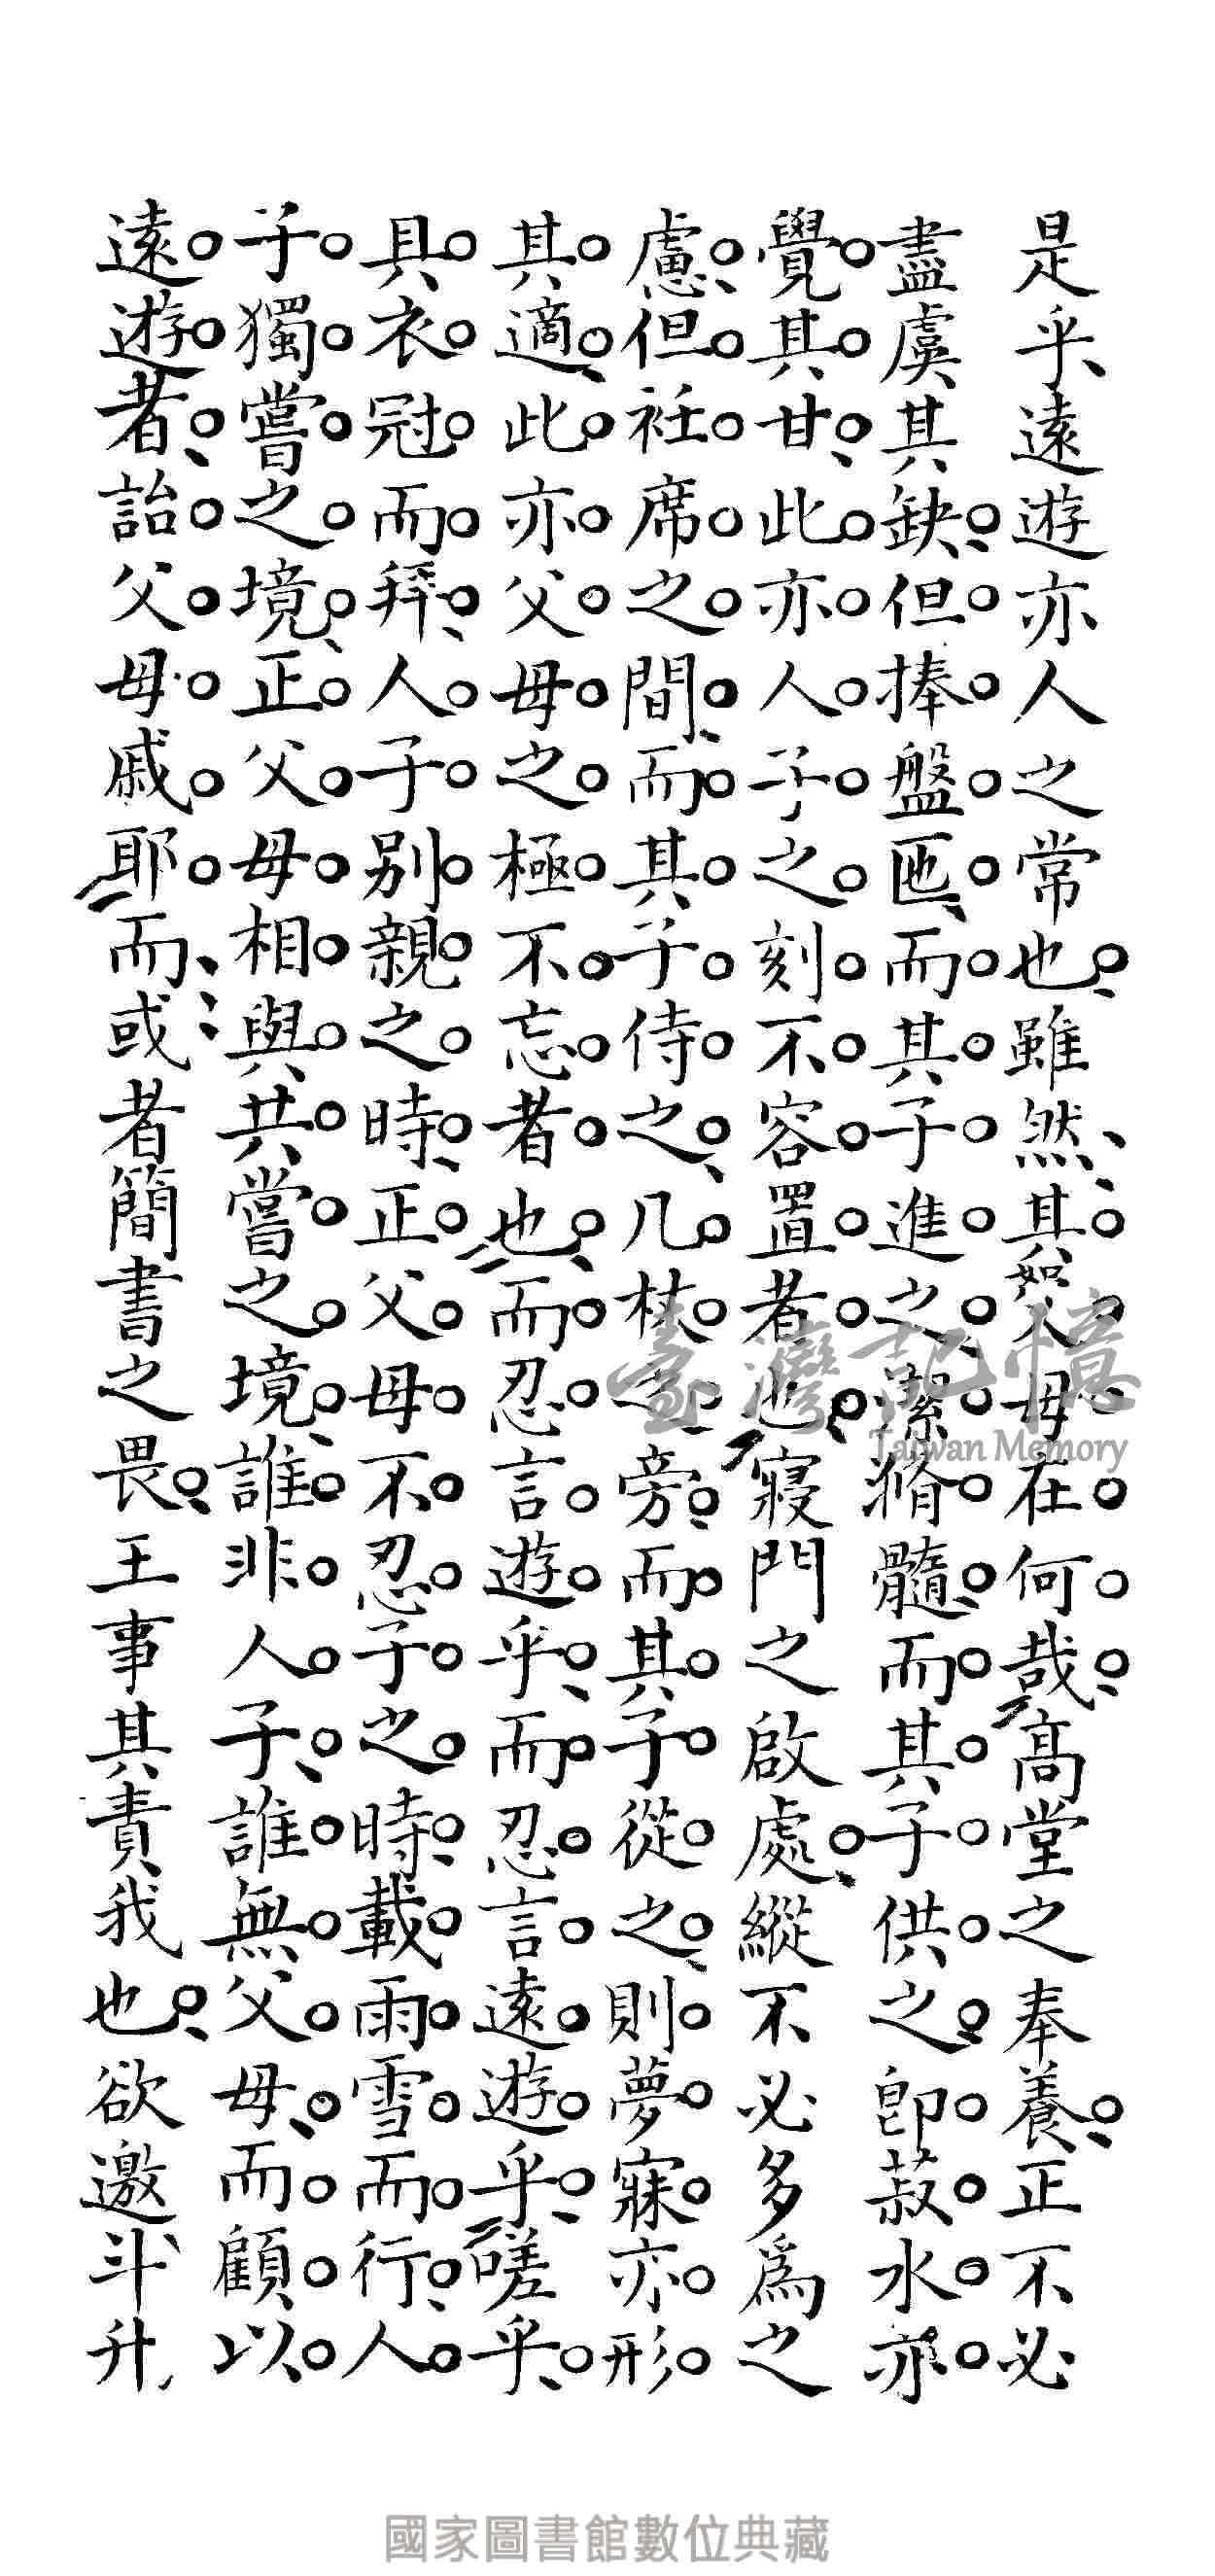 是乎遠遊亦人之常也雖然其如父母在何哉高堂之奉養正不必
盡虞其缺但捧盤匜而其子進之潔滫髓而其子供之即菽水亦
覺其甘此亦人子之刻不容置者也寢門之啟處縱不必多為之
慮但衽席之間而其子侍之几杖之旁而其子從之則夢寐亦形
其適此亦父母之極不忘者也而忍言遊乎而忍言遠遊乎嗟乎
具衣冠而拜人子別親之時正父母不忍子之時載雨雪而行人
子獨嘗之境正父母相與共嘗之境誰非人子誰無父母而顧以
遠遊者詒父母戚耶而或者簡書之畏王事其責我也欲邀斗升
臺灣記憶
Taiwan Memory
國家圖書館數位典藏